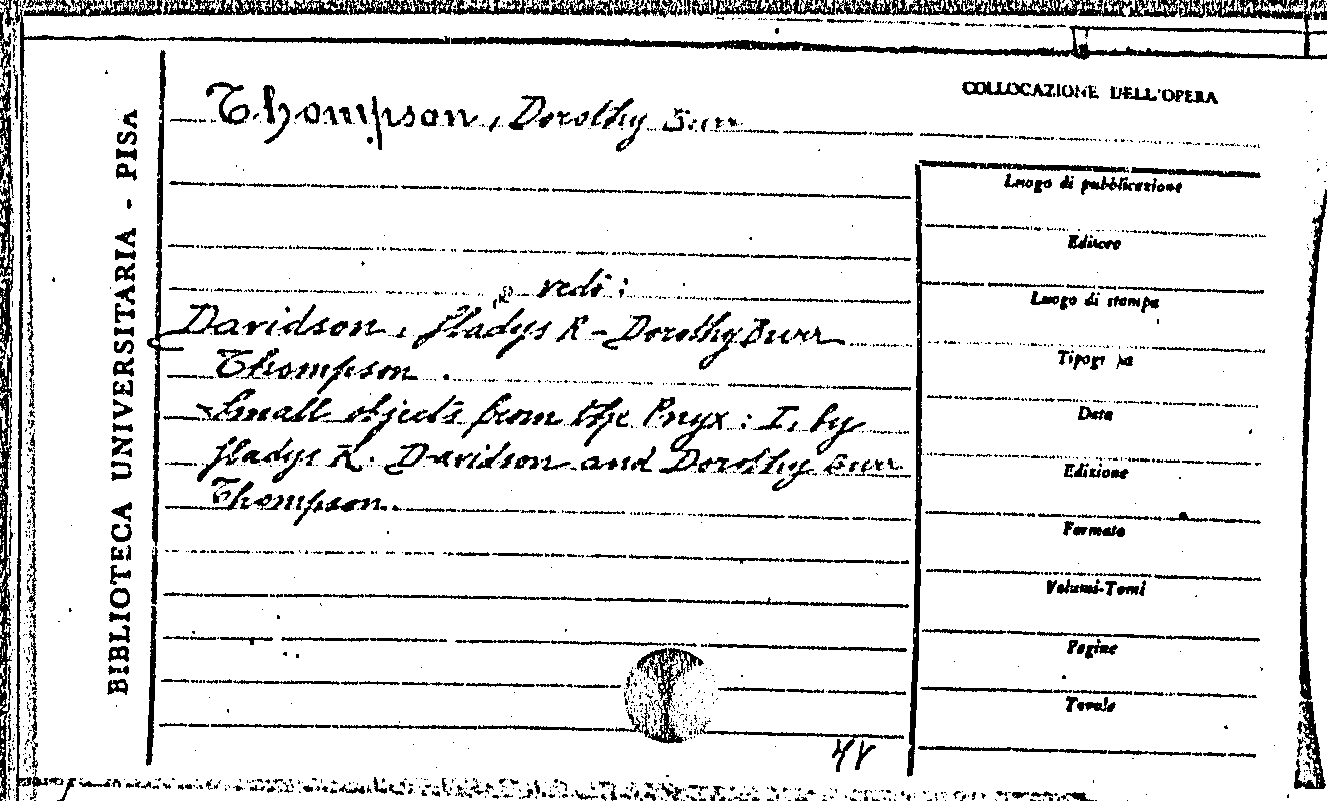 BIBLIOTECA UNIVERSITARIA - PISA
Thompson, Dorothy Burr
vedi:
Davidson, Gladys R - Dorothy Burr
Thompson.
Small objects from the Pnyx: I, by
Gladys R. Davidson and Dorothy Burr
Thompson.
COLLOCAZIONE DELL'OPERA
Luogo di pubblicazione
Editore
Luogo di stampa
Data
Edizione
Formato
Volumi-Tomi
Pagine
Tavole